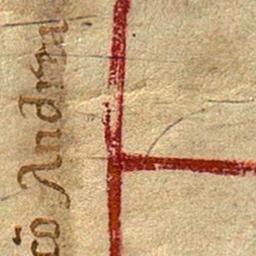 cõ Andrea